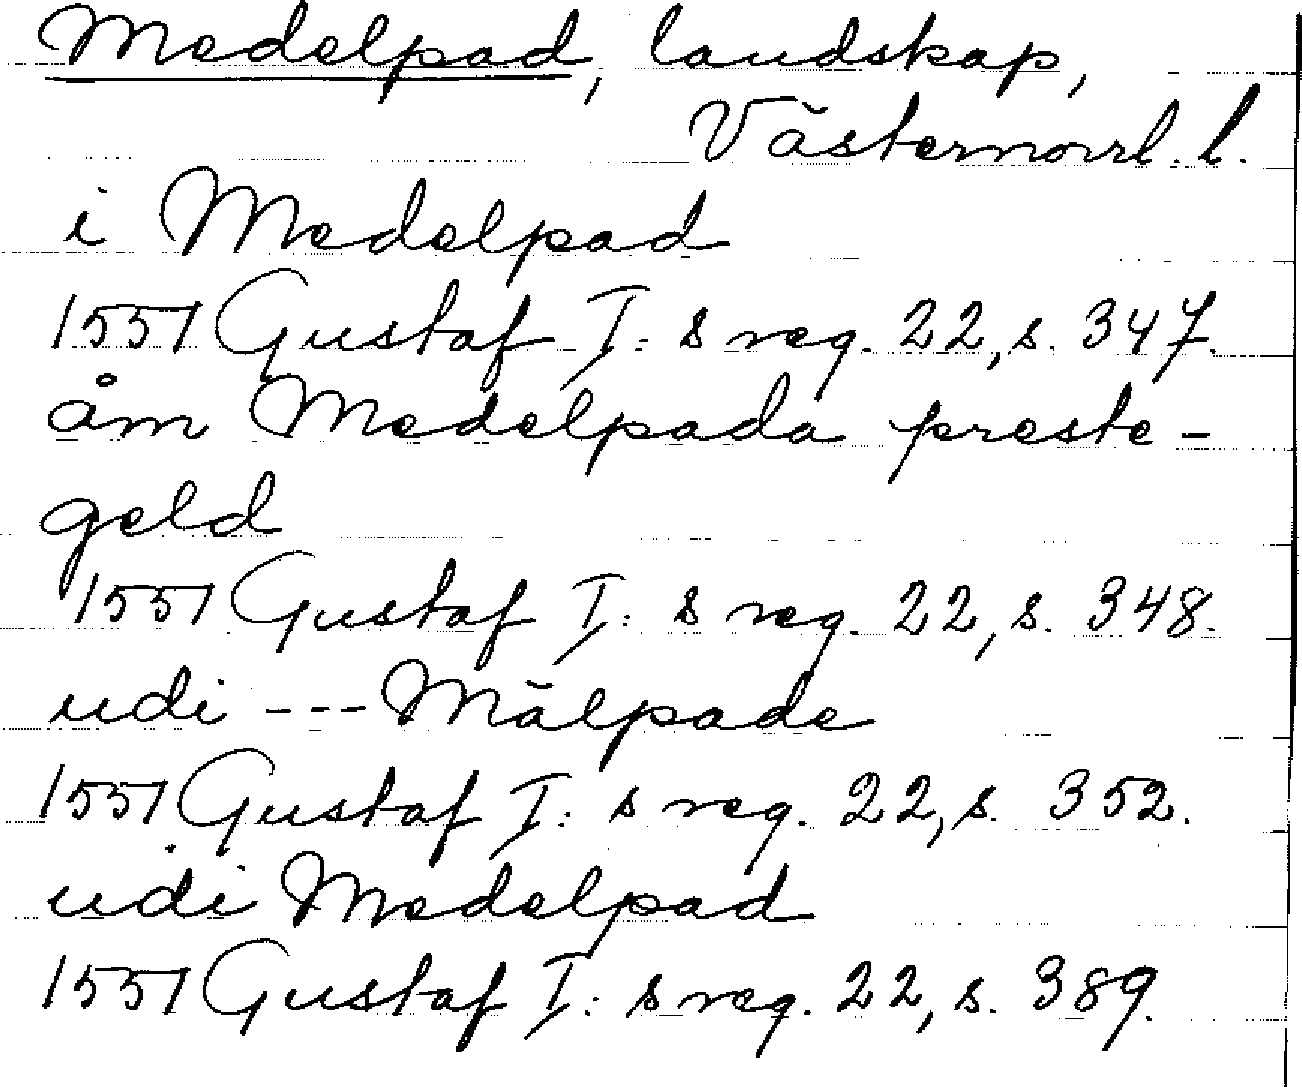 Medelpad, landskap,
Västernorrl. l.
i Medelpad
1551 Gustaf I: s reg. 22, s. 347.
åm Medelpada preste-
geld
1551 Gustaf I: s reg. 22, s. 348.
udi --- Mälpade
1551 Gustaf I: s reg. 22, s. 352.
udi Medelpad
1551 Gustaf I: s reg. 22, s. 389.